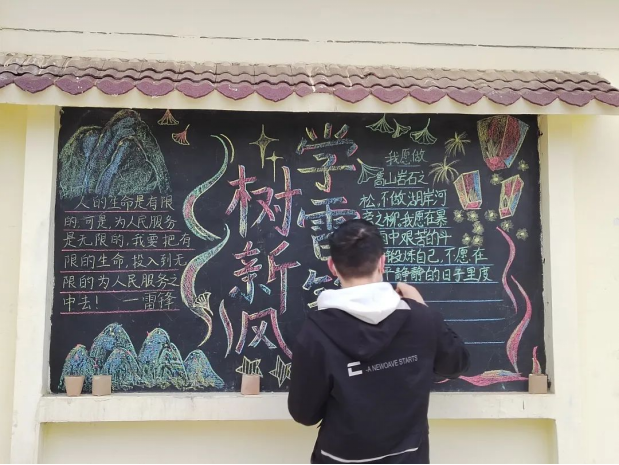 人的生命是有限
的,可是,为人民服务
是无限的,我要把,有
限的生命,投入到无
限的为人民服务之
中去! —雷锋
学雷
树新风
我愿做
高山岩石之
松,不做湖岸河
之柳,我愿在暴
雨中艰苦的斗
锻炼自己,不愿在
平静静的日子里度
-A NEWOAVE STARTS